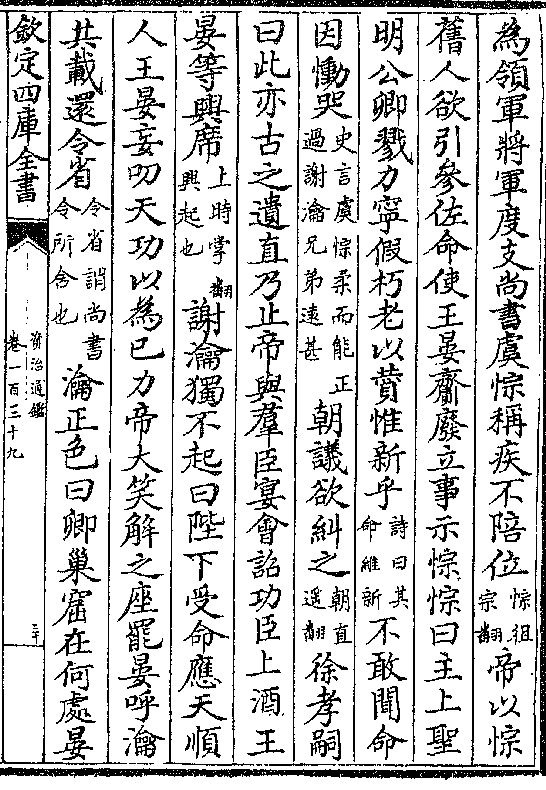 為領軍將軍度支尚書虞悰稱疾不陪位悰徂宗翻帝以悰
舊人欲引參佐命使王晏齎廢立事示悰悰曰主上聖
明公卿戮力寧假朽老以賛惟新乎詩曰其命維新不敢聞命
因慟哭史言虞悰柔而能正過謝瀹兄弟遠甚朝議欲糾之朝直遥翻徐孝嗣
曰此亦古之遺直乃止帝與羣臣宴會詔功臣上酒王
晏等興席上時掌翻興起也謝瀹獨不起曰陛下受命應天順
人王晏妄叨天功以為已力帝大笑解之座罷晏呼瀹
共載還令省令省謂尚書令所舍也瀹正色曰卿巢窟在何處晏
欽定四庫全書
資治通鑑
卷一百三十九
三十